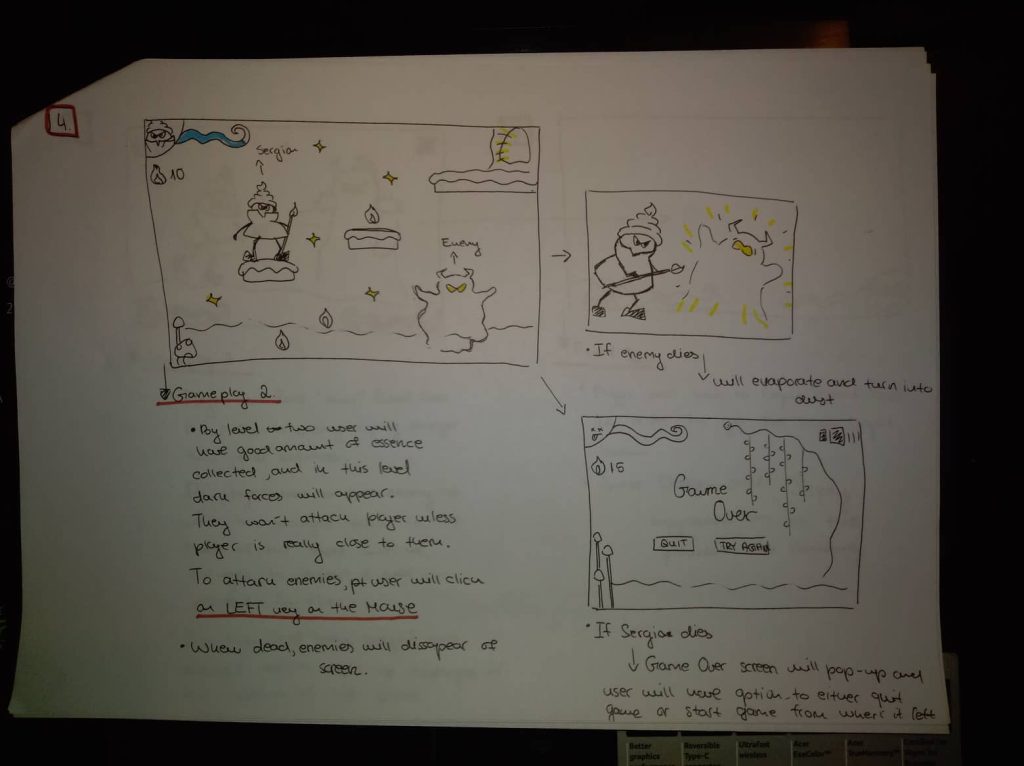 4.
Sergion
10
Enemy
Gameplay 2.
• By level two user will
have good amount of essence
collected, and in this level
dark forces will appear.
They won't attack player unless
player is really close to them.
To attack enemies, user will click
on LEFT key on the Mouse
• When dead, enemies will dissapear of
screen.
• If enemy dies
will evaporate and turn into
dust
15
Game
Over
QUIT
TRY AGAIN
• If Sergion dies
Game Over screen will pop-up and
user will have option to either quit
game or start game from where it left
Better
graphics
Reversible
Type-C
Ultrafast
wireless
Acer
Acer